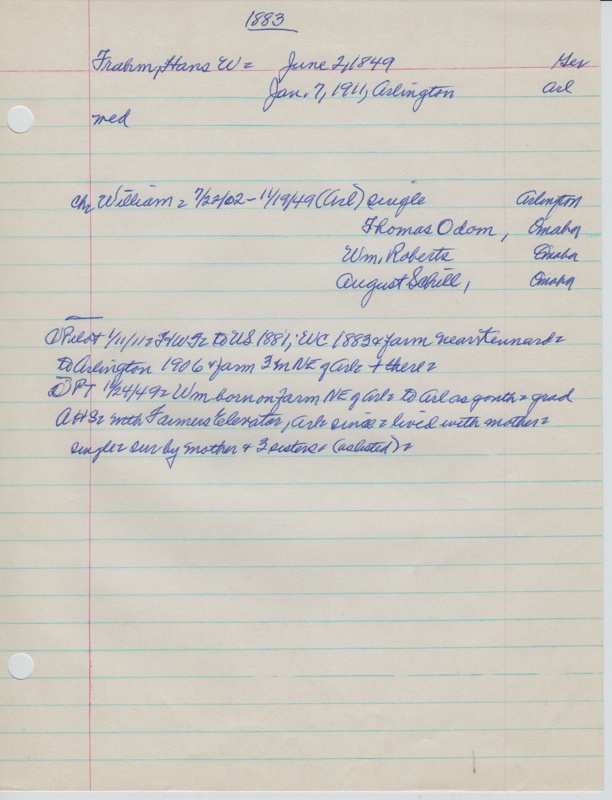 1883
Frahm, Hans W = June 2, 1849 Ger
Jan. 7, 1911, Arlington Arl
med
ch = William = 7/28/02 - 11/19/49 (Arl) single Arlington
Thomas Odom, Omaha
Wm. Roberts Omaha
August Schill, Omaha
① Pilot 1/11/11 = HWF = to US 1881; WC 1883 & farm near Kennard =
to Arlington 1906 & farm 3 m NE of Arl = + there =
② PT 11/24/49 = Wm born on farm NE of Arl = to Arl as youth = grad
AHS = with Farmers Elevator, Arl = since = lived with mother =
single = sur by mother + 3 sisters = (as listed) =